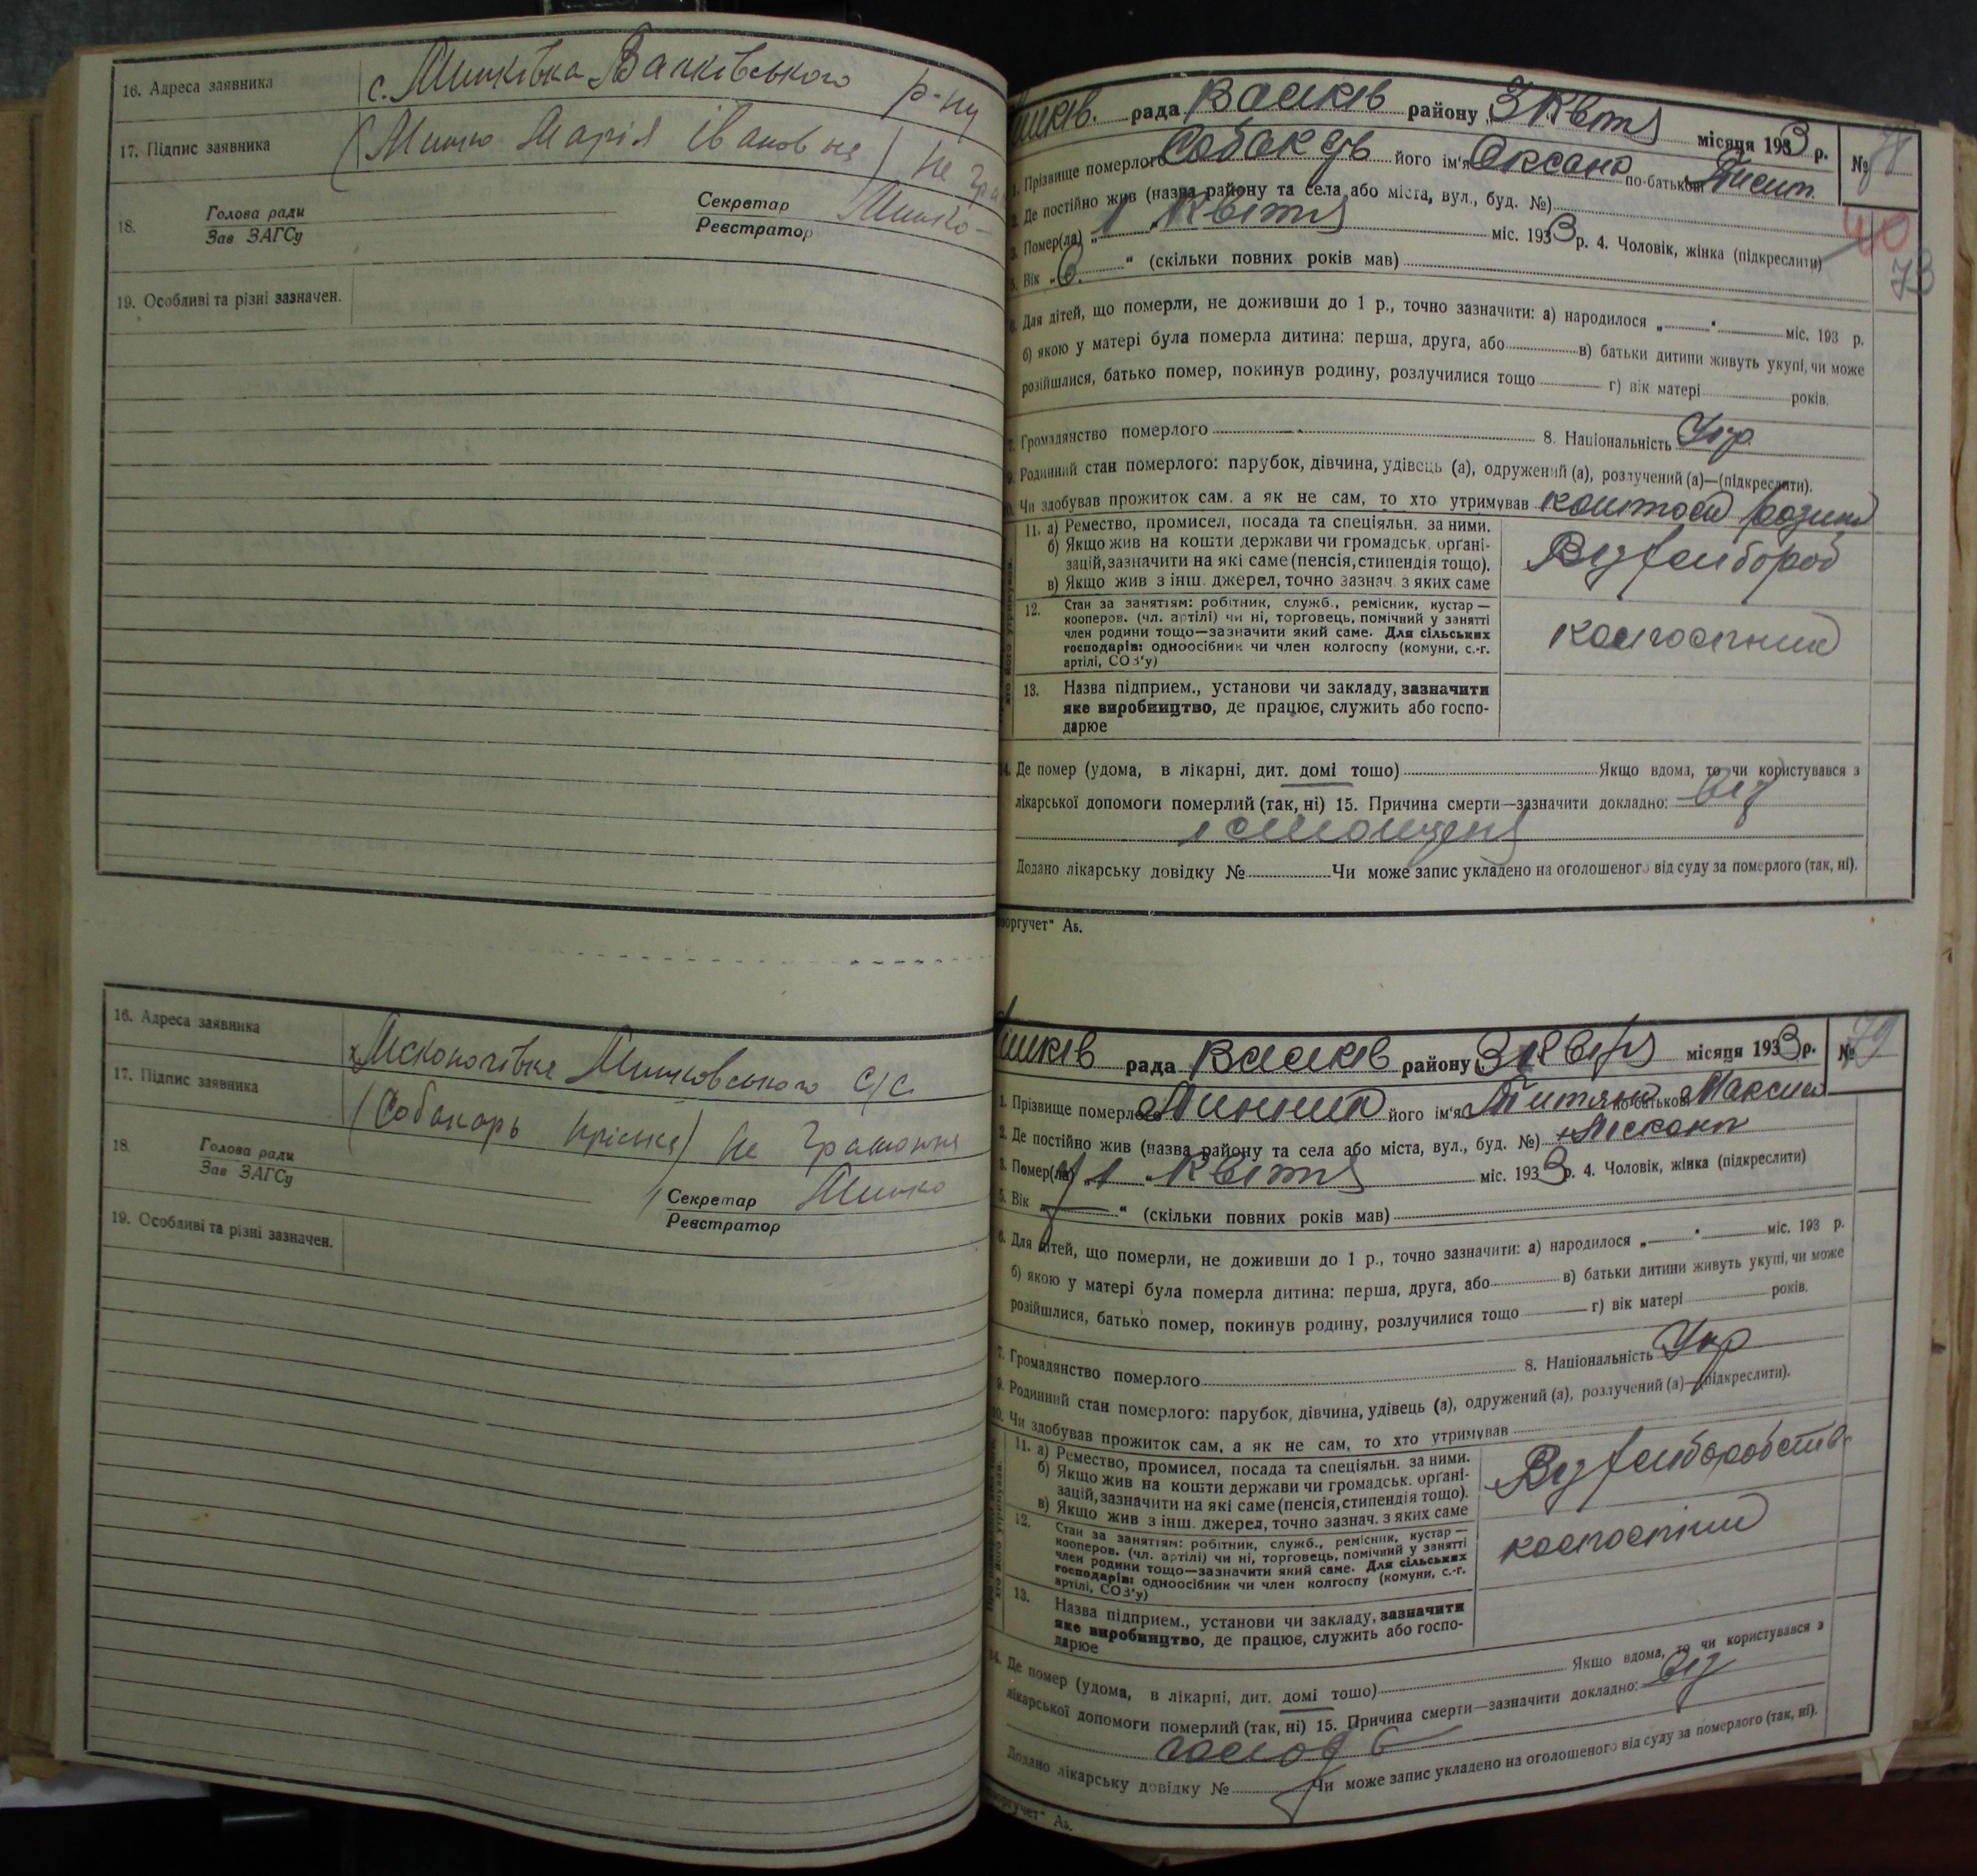 16. Адреса заявника с. Минківка Валківського р-ну
17. Підпис заявника (Минко Марія Івановна) не гра
18. Голова ради
Зав ЗАГСу
Секретар
Реєстратор
Минко
19. Особливі та різні зазначен.
16. Адреса заявника Минковського с/с
17. Підпис заявника (Собакарь Пріська) не грамотна
18. Голова ради
Зав ЗАГСу
Секретар
Реєстратор
Минко
19. Особливі та різні зазначен.
рада Валків району 3 Квітня місяця 1933 р. № 78
1. Прізвище померлого Собакарь його ім'я Оксана по-батькові
2. Де постійно жив (назва району та села або міста, вул., буд. №)
3. Помер(ла) „ 1 " Квітня міс. 1933 р. 4. Чоловік, жінка (підкреслити)
40
73
5. Вік „ 6 " (скільки повних років мав)
6. Для дітей, що померли, не доживши до 1 р., точно зазначити: а) народилося „ " міс. 193 р.
б) якою у матері була померла дитина: перша, друга, або в) батьки дитини живуть укупі, чи може
розійшлися, батько помер, покинув родину, розлучилися тощо г) вік матері років.
7. Громадянство померлого 8. Національність Укр
9. Родинний стан померлого: парубок, дівчина, удівець (а), одружений (а), розлучений (а)—(підкреслити).
10. Чи здобував прожиток сам, а як не сам, то хто утримував
11. а) Ремество, промисел, посада та спеціяльн. за ними.
б) Якщо жив на кошти держави чи громадськ. органі-
зацій, зазначити на які саме (пенсія, стипендія тощо).
в) Якщо жив з інш. джерел, точно зазнач. з яких саме
Від хлібороб
12. Стан за заняттям: робітник, служб., ремісник, кустар —
кооперов. (чл. артілі) чи ні, торговець, помічний у занятті
член родини тощо—зазначити який саме. Для сільських
господарів: одноосібник чи член колгоспу (комуни, с.-г.
артілі, СОЗ'у)
колгоспник
13. Назва підприєм., установи чи закладу, зазначити
яке виробництво, де працює, служить або госпо-
дарює
14. Де помер (удома, в лікарні, дит. домі тошо) Якщо вдома, то чи користувався з
лікарської допомоги померлий (так, ні) 15. Причина смерти—зазначити докладно: від
Додано лікарську довідку № Чи може запис укладено на оголошеного від суду за померлого (так, ні).
оргучет" Аз.
рада Валків району 3 Квітня місяця 1933 р. № 79
1. Прізвище померлого його ім'я по-батькові Максим
2. Де постійно жив (назва району та села або міста, вул., буд. №)
3. Помер(ла) „ 1 " Квітня міс. 1933 р. 4. Чоловік, жінка (підкреслити)
5. Вік „ " (скільки повних років мав)
6. Для дітей, що померли, не доживши до 1 р., точно зазначити: а) народилося „ " міс. 193 р.
б) якою у матері була померла дитина: перша, друга, або в) батьки дитини живуть укупі, чи може
розійшлися, батько помер, покинув родину, розлучилися тощо г) вік матері років.
7. Громадянство померлого 8. Національність Укр
9. Родинний стан померлого: парубок, дівчина, удівець (а), одружений (а), розлучений (а)—(підкреслити).
10. Чи здобував прожиток сам, а як не сам, то хто утримував
11. а) Ремество, промисел, посада та спеціяльн. за ними.
б) Якщо жив на кошти держави чи громадськ. органі-
зацій, зазначити на які саме (пенсія, стипендія тощо).
в) Якщо жив з інш. джерел, точно зазнач. з яких саме
Від хліборобств
12. Стан за заняттям: робітник, служб., ремісник, кустар —
кооперов. (чл. артілі) чи ні, торговець, помічний у занятті
член родини тощо—зазначити який саме. Для сільських
господарів: одноосібник чи член колгоспу (комуни, с.-г.
артілі, СОЗ'у)
13. Назва підприєм., установи чи закладу, зазначити
яке виробництво, де працює, служить або госпо-
дарює
14. Де помер (удома, в лікарні, дит. домі тошо) Якщо вдома, то чи користувався з
лікарської допомоги померлий (так, ні) 15. Причина смерти—зазначити докладно: від
голоду
Додано лікарську довідку № Чи може запис укладено на оголошеного від суду за померлого (так, ні).
оргучет" Аз.